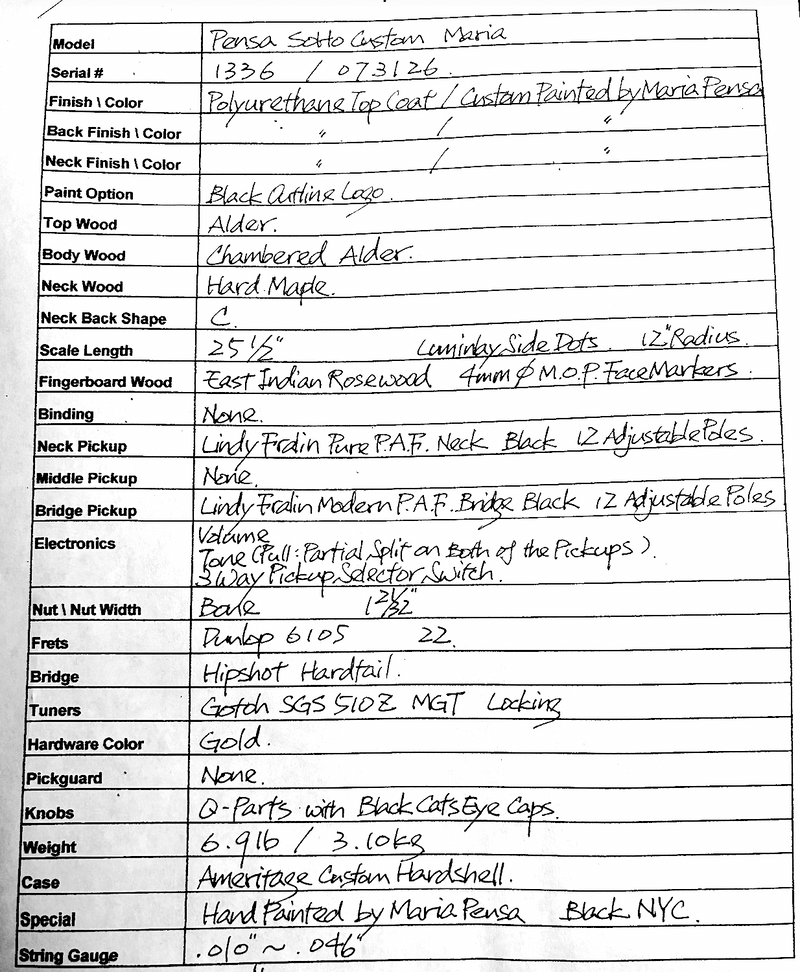 Model Pensa Sotto Custom Maria
Serial # 1336 / 073126.
Finish \ Color Polyurethane Top Coat / Custom Painted by Maria Pensa
Back Finish \ Color " / "
Neck Finish \ Color " / "
Paint Option Black Outline Logo.
Top Wood Alder.
Body Wood Chambered Alder.
Neck Wood Hard Maple.
Neck Back Shape C.
Scale Length 25 1/2" Luminlay Side Dots. 12" Radius.
Fingerboard Wood East Indian Rosewood 4mm Ø M.O.P. Face Markers.
Binding None.
Neck Pickup Lindy Fralin Pure P.A.F. Neck Black 12 Adjustable Poles.
Middle Pickup None.
Bridge Pickup Lindy Fralin Modern P.A.F. Bridge Black 12 Adjustable Poles
Electronics Volume
Tone (Pull: Partial Split on Both of the Pickups).
3 Way Pickup Selector Switch.
Nut \ Nut Width Bone 1 21/32"
Frets Dunlop 6105 22.
Bridge Hipshot Hardtail.
Tuners Gotoh SGS 510Z MGT Locking
Hardware Color Gold.
Pickguard None.
Knobs Q-Parts with Black Cats Eye Caps.
Weight 6.9lb / 3.10kg
Case Ameritage Custom Hardshell.
Special Hand Painted by Maria Pensa Black NYC.
String Gauge .010" ~ .046"